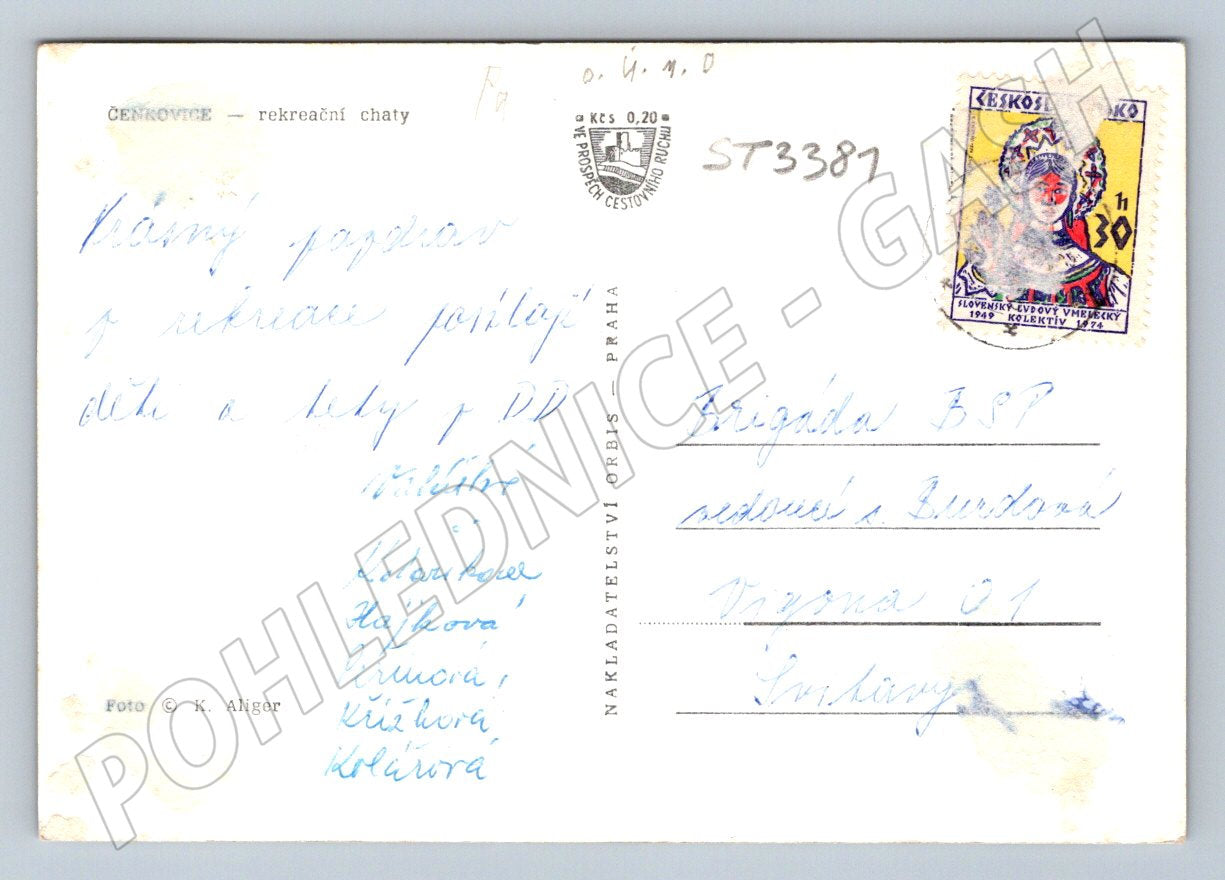 ČENKOVICE — rekreační chaty
o. Ú. n. O
Kčs 0,20
VE PROSPĚCH CESTOVNÍHO RUCHU
ST3381
ČESKOSLOVENSKO
30 h
SLOVENSKÝ ĽUDOVÝ UMELECKÝ
1949 KOLEKTÍV 1974
Krásný pozdrav
z rekreace posílají
děti a tety z DD
Kolaříková
Hájková
Křížková
Kolářová
Foto © K. Aliger
NAKLADATELSTVÍ ORBIS — PRAHA
Brigáda BSP
vedoucí s. Burdová
Vigona 01
Svitavy
POHLEDNICE - GACH